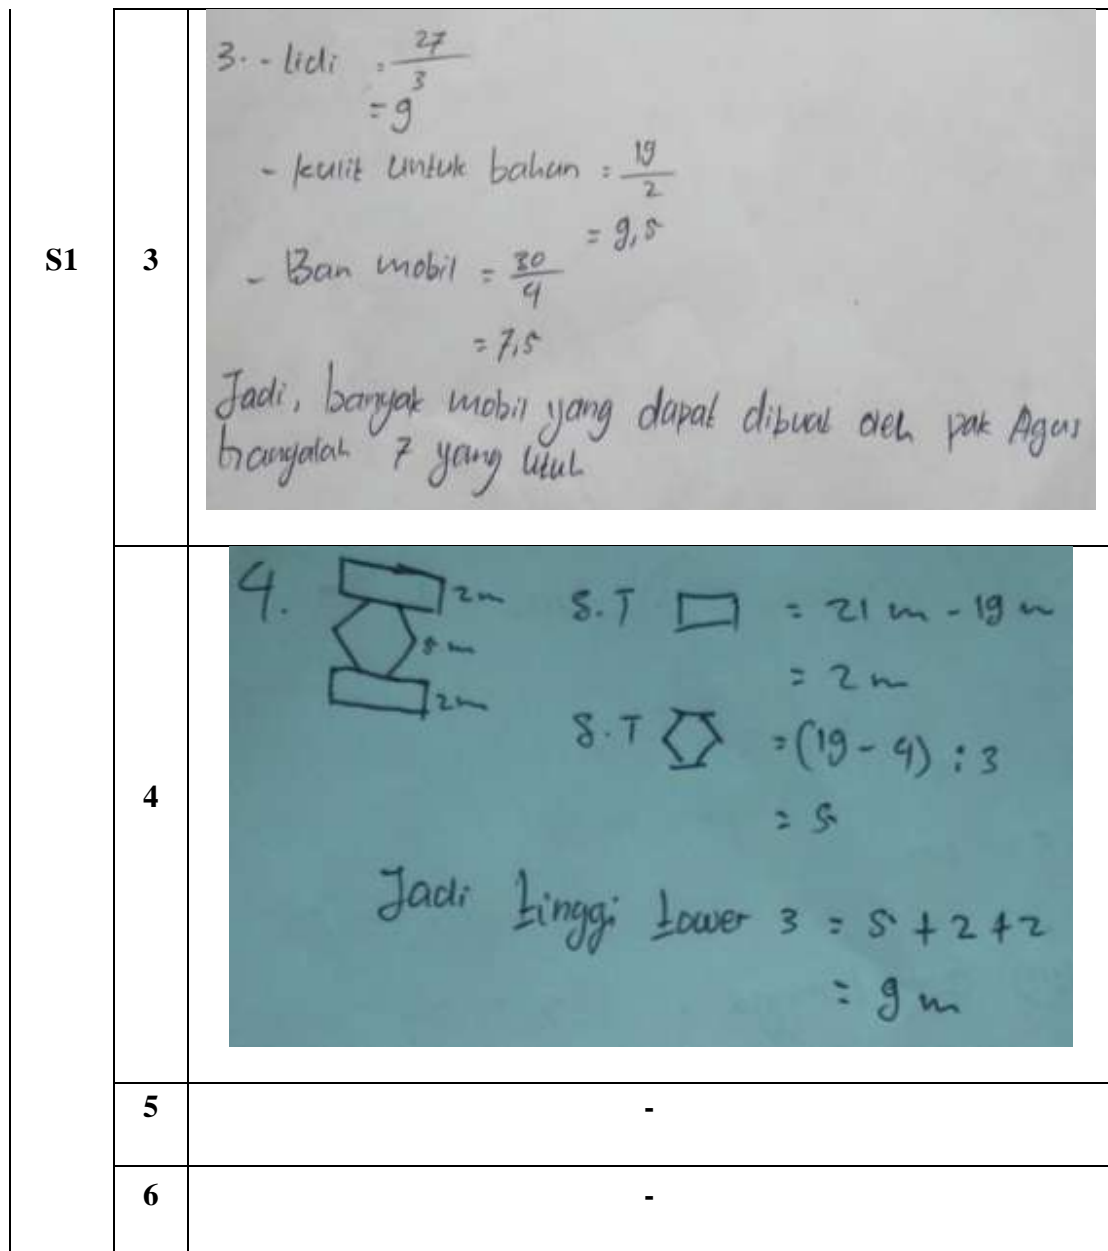 S1
3
3. - lidi = 27/3
= 9
- kulit untuk bahan = 19/2
= 9,5
- Ban mobil = 30/4
= 7,5
Jadi, banyak mobil yang dapat dibuat oleh pak Agus
hanyalah 7 yang utuh
4
4.
2 m
5 m
2 m
S.T = 21 m - 19 m
= 2 m
S.T = (19 - 4) : 3
= 5
Jadi tinggi tower 3 = 5 + 2 + 2
= 9 m
5
-
6
-